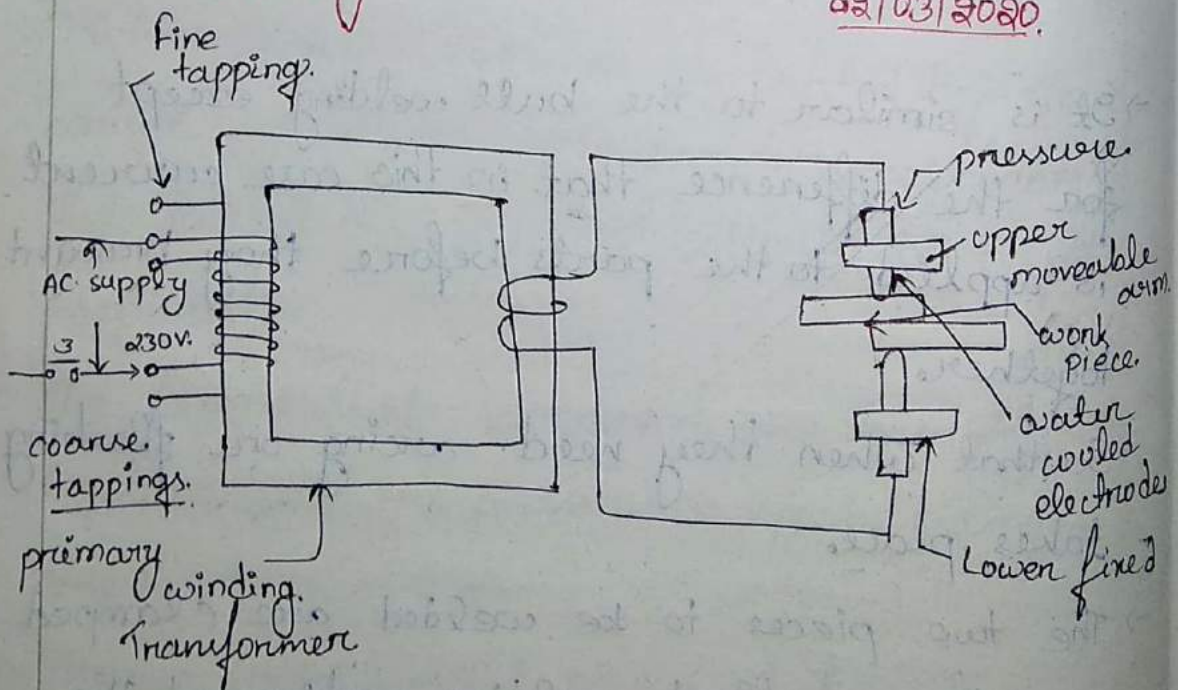 02/03/2020.
fine
tapping.
AC. supply
3
230V.
coarse.
tappings.
primary
winding.
Transformer
pressure.
upper
moveable
arm.
work
piece.
water
cooled
electrodes
Lower fixed